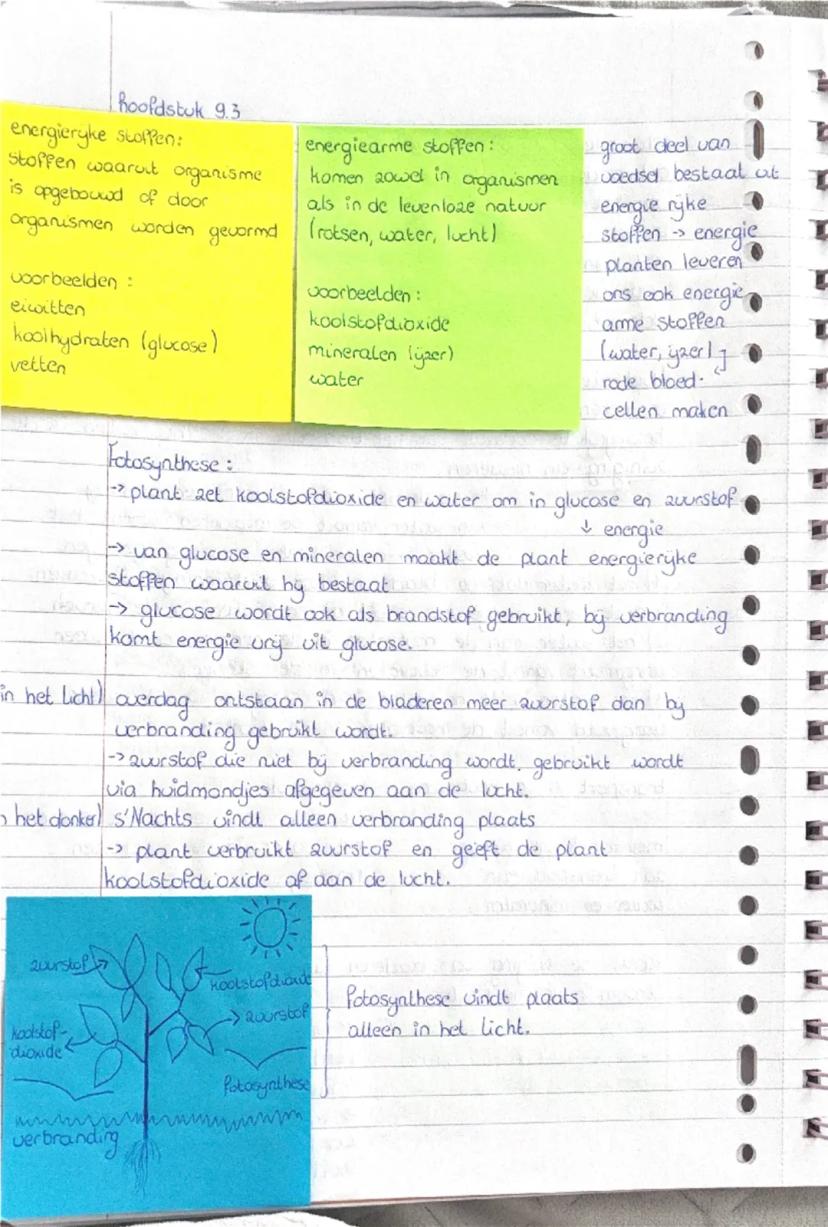 Hoofdstuk 9.3
energierijke stoffen:
stoffen waaruit organisme
is opgebouwd of door
organismen worden gevormd
voorbeelden :
eiwitten
koolhydraten (glucose)
vetten
energiearme stoffen :
komen zowel in organismen
als in de levenloze natuur
(rotsen, water, lucht)
voorbeelden :
koolstofdioxide
mineralen (ijzer)
water
groot deel van
voedsel bestaat uit
energie rijke
stoffen → energie
planten leveren
ons ook energie
arme stoffen
(water, ijzer)
rode bloed-
cellen maken
Fotosynthese :
→ plant zet koolstofdioxide en water om in glucose en zuurstof
↓ energie
→ van glucose en mineralen maakt de plant energierijke
stoffen waaruit hij bestaat
→ glucose wordt ook als brandstof gebruikt, bij verbranding
komt energie vrij uit glucose.
in het licht) overdag ontstaan in de bladeren meer zuurstof dan bij
verbranding gebruikt wordt.
→ zuurstof die niet bij verbranding wordt gebruikt wordt
via huidmondjes afgegeven aan de lucht.
het donker) s'Nachts vindt alleen verbranding plaats
→ plant verbruikt zuurstof en geeft de plant
koolstofdioxide af aan de lucht.
zuurstof
koolstof-
dioxide
verbranding
koolstofdioxide
zuurstof
fotosynthese
fotosynthese vindt plaats
alleen in het licht.